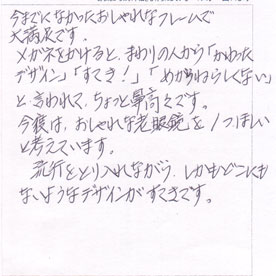 今までになかったおしゃれなフレームで
大満足です。
メガネをかけると、まわりの人から「かわった
デザイン」「すてき！」「めがねらしくない」
と言われて、ちょっと鼻高々です。
今後は、おしゃれな老眼鏡を1つほしい
と考えています。
流行をとり入れながら、しかもどこにも
ないようなデザインがすてきです。